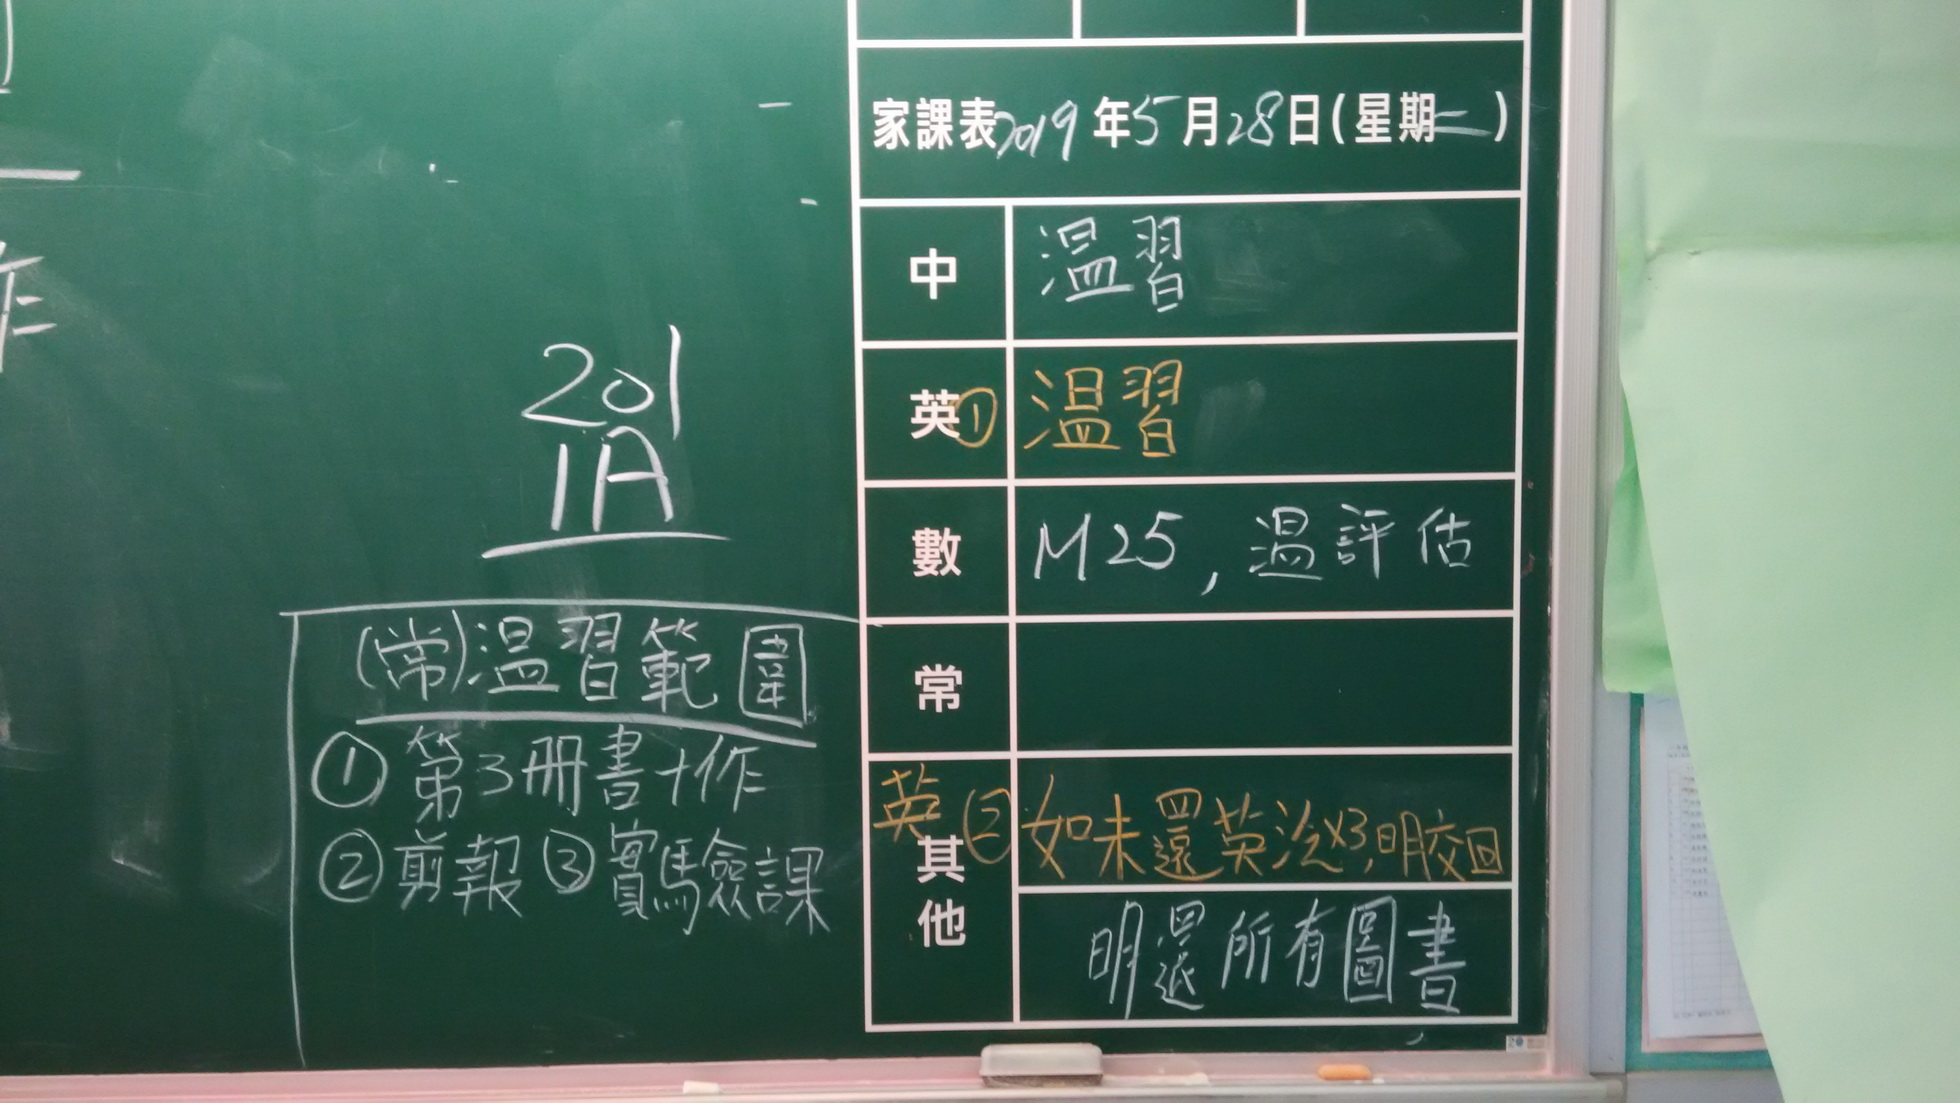 201
1A
(常)溫習範圍
① 第3冊書+作
② 剪報 ③ 實驗課
家課表 2019年5月28日(星期二)
中 溫習
英① 溫習
數 M25, 溫評估
常
其他
英② 如未還英 x3, 明交回
明還所有圖書